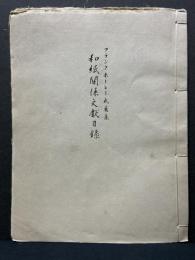 フランク・ホーレー氏蒐集
和紙関係文献目録